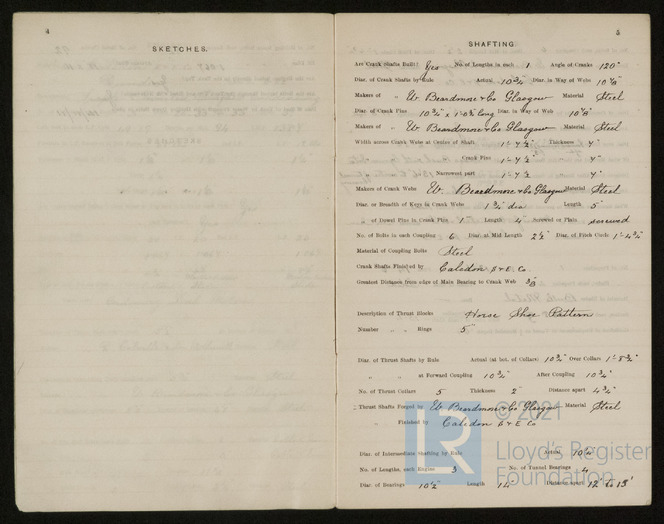 4
SKETCHES.
5
SHAFTING
Are Crank Shafts Built? Yes No. of Lengths in each 1 Angle of Cranks 120°
Diar. of Crank Shafts by Rule Actual 10 3/4" Diar. in Way of Webs 10 7/8"
Makers of " W. Beardmore & Co Glasgow Material Steel
Diar. of Crank Pins 10 3/4" x 1'-0 3/4" long Diar. in Way of Web 10 7/8"
Makers of " W. Beardmore & Co Glasgow Material Steel
Width across Crank Webs at Centre of Shaft 1'-4 1/2" Thickness 4"
" " Crank Pins 1'-4 1/2" " 4"
" " Narrowest part 1'-4 1/2" " 4"
Makers of Crank Webs W. Beardmore & Co Glasgow Material Steel
Diar. or Breadth of Keys in Crank Webs 1 3/4" dia Length 5"
" of Dowel Pins in Crank Pins 1" Length 4" Screwed or Plain screwed
No. of Bolts in each Coupling 6 Diar. at Mid Length 2 1/2" Diar. of Pitch Circle 1'-4 3/4"
Material of Coupling Bolts Steel
Crank Shafts Finished by Caledon S & E. Co.
Greatest Distance from edge of Main Bearing to Crank Web
Description of Thrust Blocks Horse Shoe Pattern
Number " " Rings 5
Diar. of Thrust Shafts by Rule Actual (at bot. of Collars) 10 3/4" Over Collars 1'-8 3/4"
" " at Forward Coupling 10 3/4" After Coupling 10 3/4"
No. of Thrust Collars 5 Thickness 2" Distance apart 4 3/4"
Thrust Shafts Forged by W. Beardmore & Co Glasgow Material Steel
" Finished by Caledon S & E. Co
Diar. of Intermediate Shafting by Rule Actual 10 1/4
No. of Lengths, each Engine 3 No. of Tunnel Bearings 4
Diar. of Bearings 10 1/2 Length 14" Distance apart 12' to 13'
© 2021
LR
Lloyd's Register
Foundation